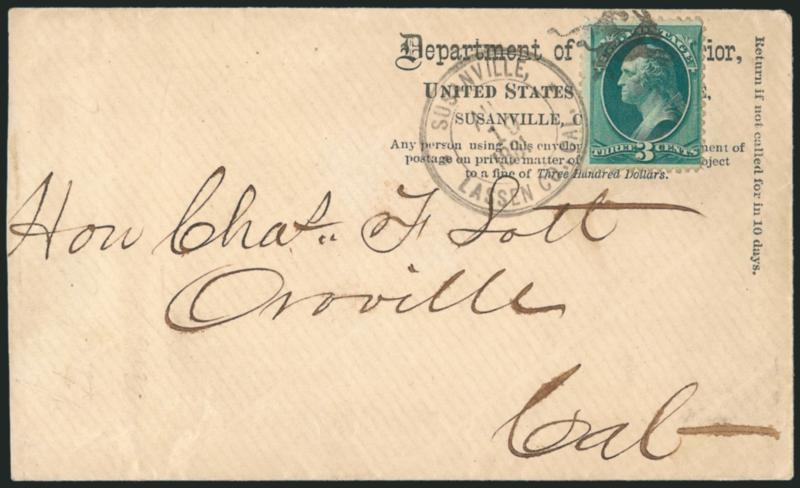 Department of rior,
UNITED STATES E,
SUSANVILLE, C
Any person using this envelo ment of
postage on private matter of bject
to a fine of Three Hundred Dollars.
Return if not called for in 10 days.
SUSANVILLE,
LASSEN CO., CAL.
POSTAGE
THREE 3 CENTS
Hon Chas. F Lott
Oroville
Cal